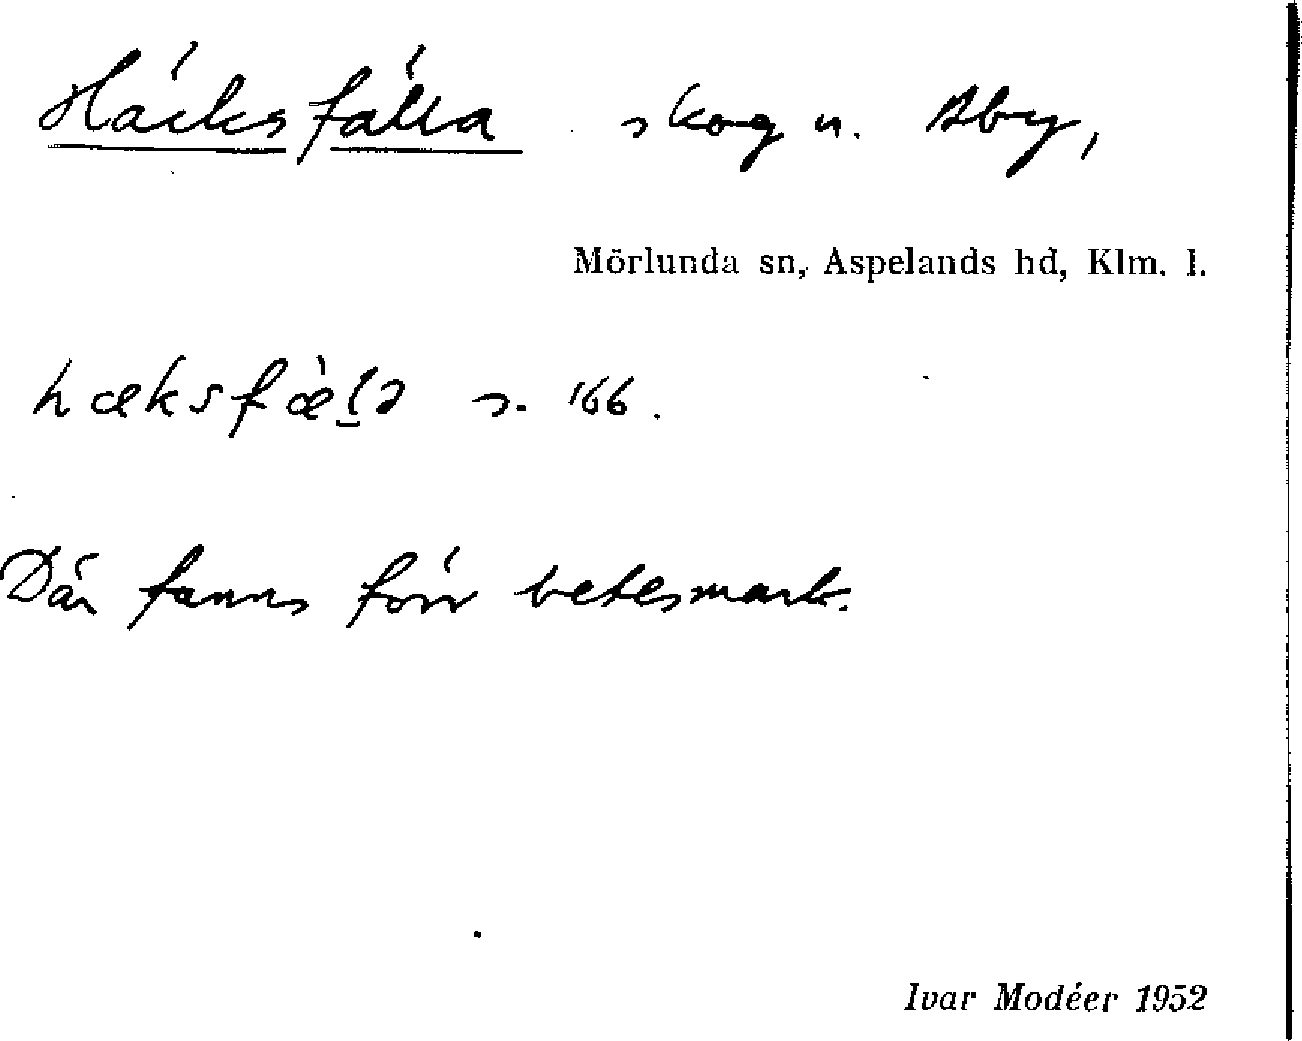 Häcksfälla skog u. Åby,
Mörlunda sn, Aspelands hd, Klm. l.
hæksfæ̀l̠ə s. 166.
Där fanns förr betesmark.
Ivar Modéer 1952